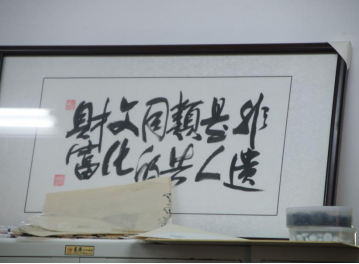 非遗
是人
類共
同的
文化
財富